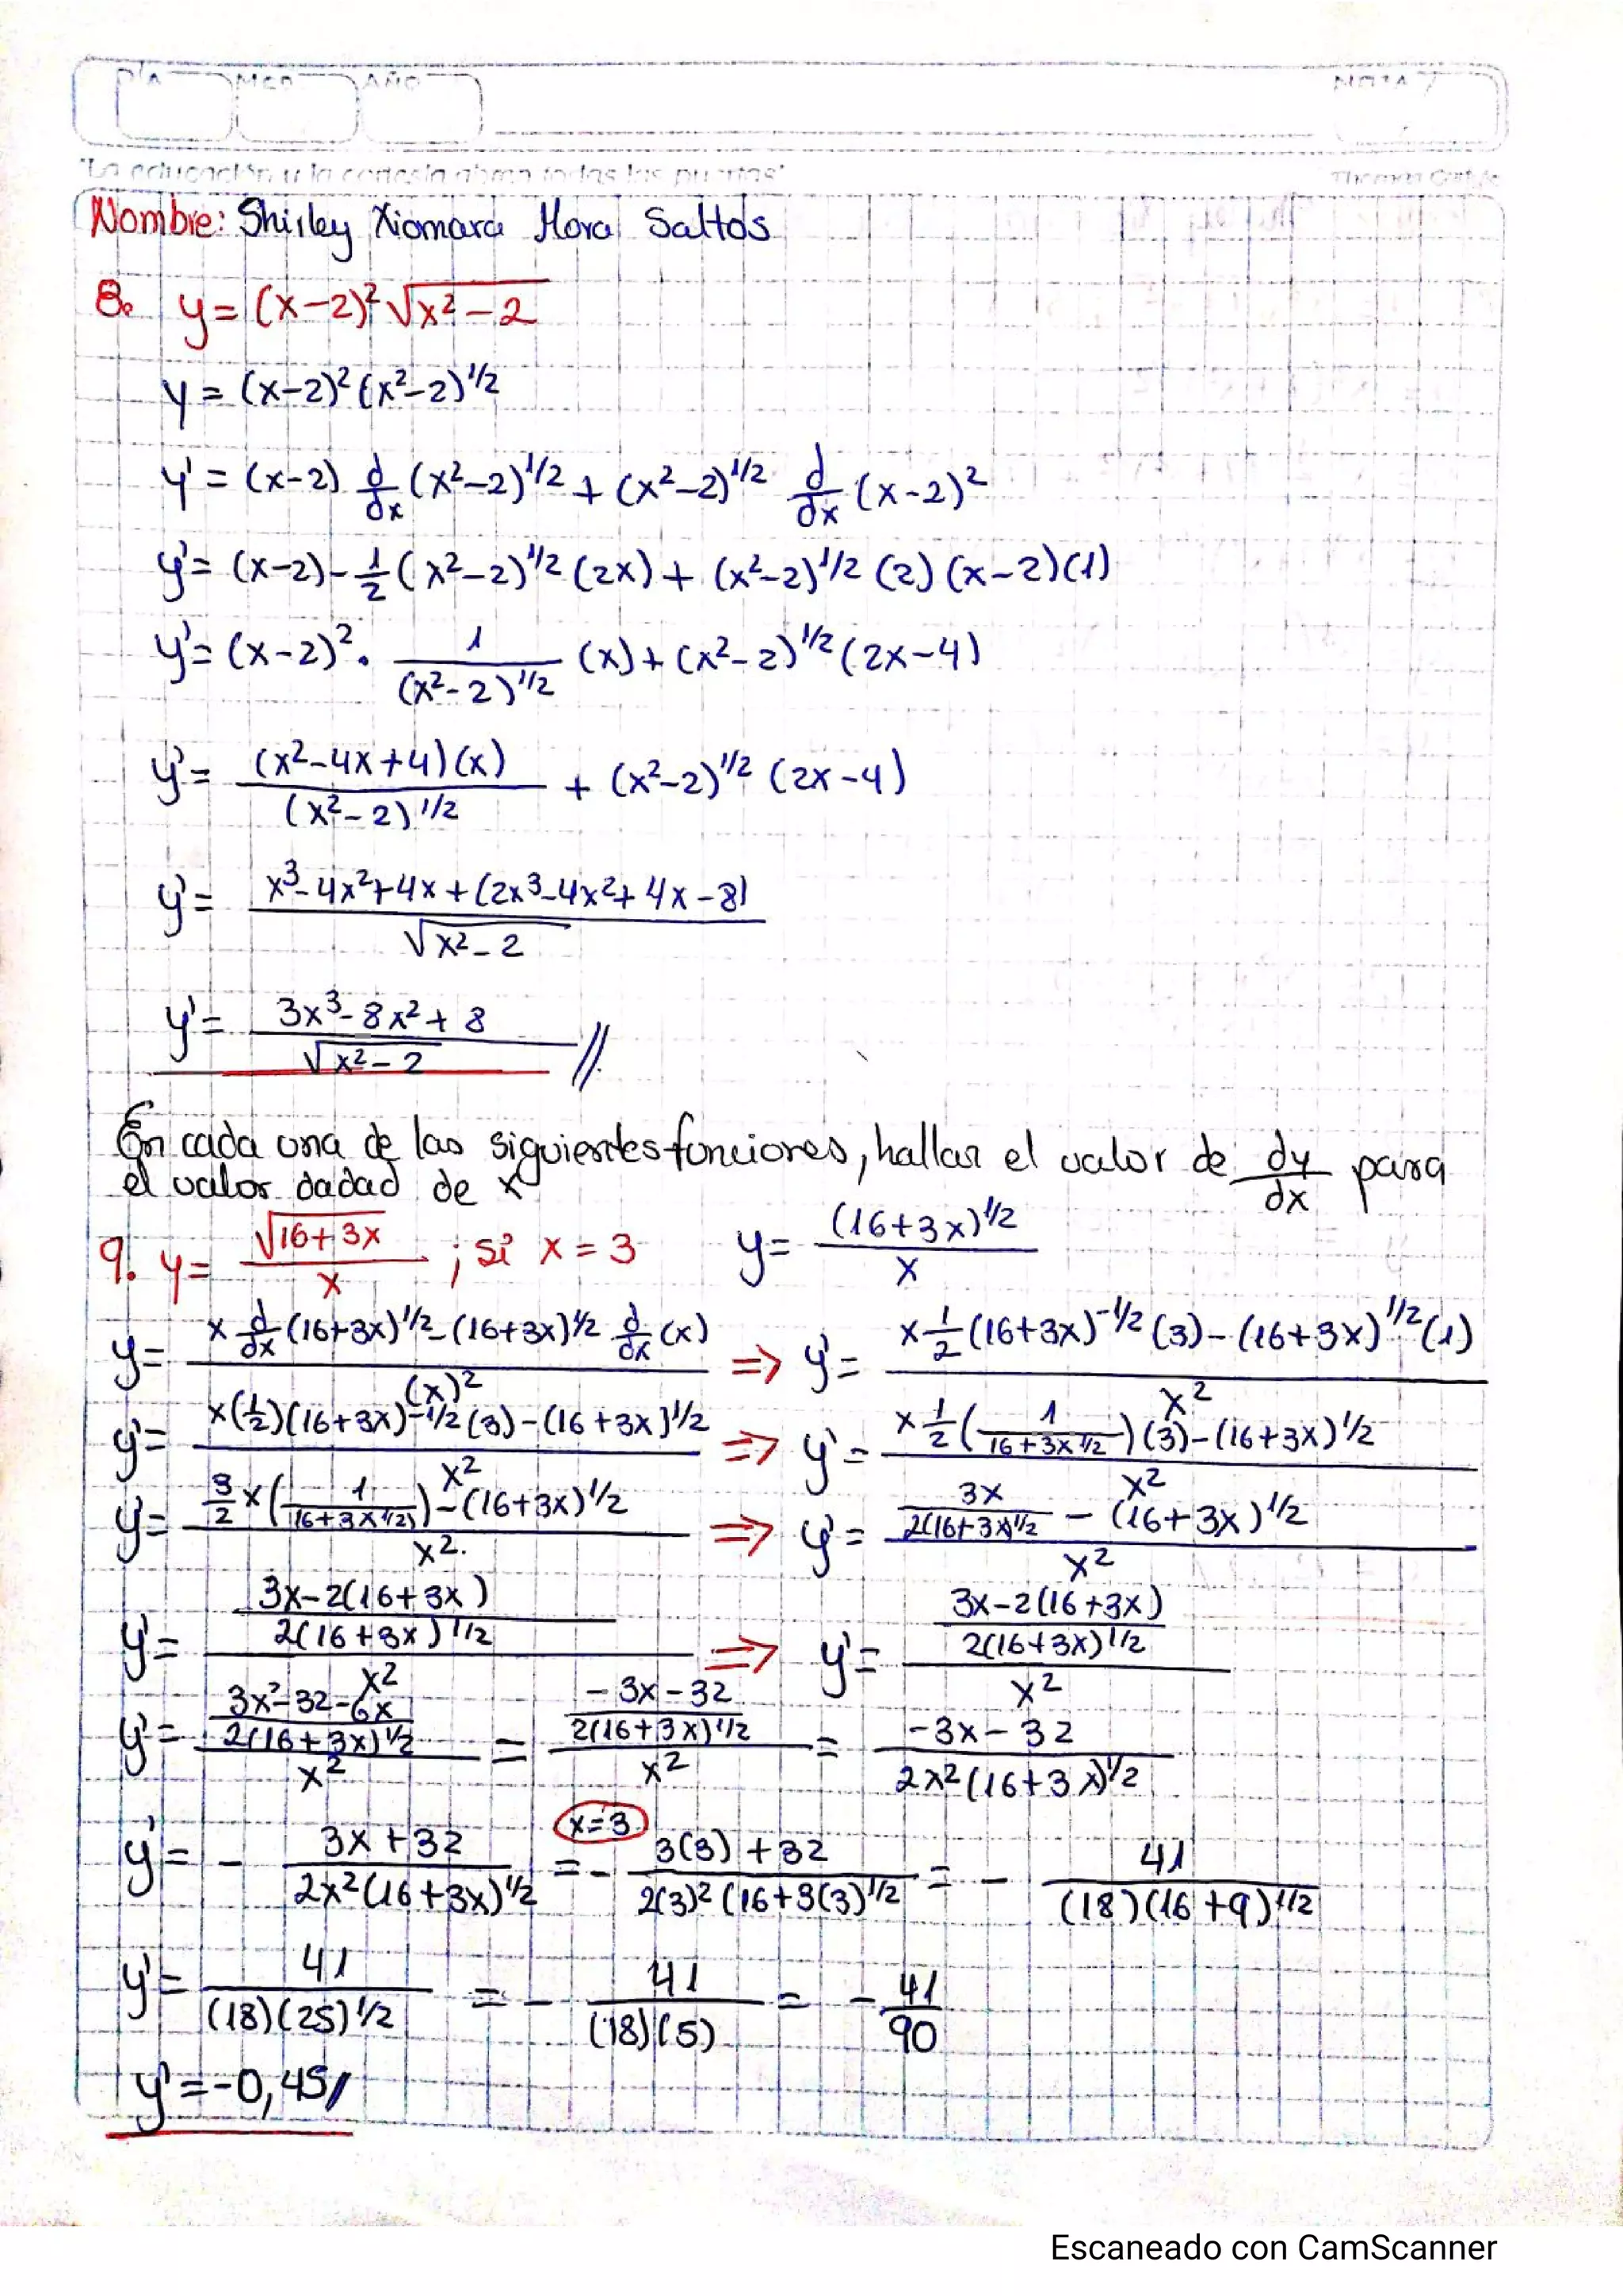 DIA MES AÑO NOTA
"La educación y la cortesía abren todas las puertas"
Nombre: Shirley Xiomara Mora Saltos
8. y = (x-2)² √x²-2
y = (x-2)² (x²-2)^1/2
y' = (x-2) d/dx (x²-2)^1/2 + (x²-2)^1/2 d/dx (x-2)²
y' = (x-2) - 1/2 (x²-2)^1/2 (2x) + (x²-2)^1/2 (2) (x-2)(1)
y' = (x-2)² . 1/(x²-2)^1/2 (x) + (x²-2)^1/2 (2x-4)
y' = (x²-4x+4)(x)/(x²-2)^1/2 + (x²-2)^1/2 (2x-4)
y' = x³-4x²+4x+(2x³-4x²+4x-8)/√x²-2
y' = 3x³-8x²+8/√x²-2 //
En cada una de las siguientes funciones, hallar el valor de dy/dx para
el valor dadad de x
9. y = √16+3x/x ; si x = 3 y = (16+3x)^1/2/x
y = x d/dx (16+3x)^1/2 - (16+3x)^1/2 d/dx (x)/(x)² => y' = x 1/2 (16+3x)^-1/2 (3) - (16+3x)^1/2 (1)/x²
y' = x(1/2)(16+3x)^-1/2 (3) - (16+3x)^1/2/x² => y' = x 1/2 (1/16+3x^1/2) (3) - (16+3x)^1/2/x²
y' = 3/2 x (1/16+3x^1/2) - (16+3x)^1/2/x². => y' = 3x/2(16+3x)^1/2 - (16+3x)^1/2/x²
y' = 3x-2(16+3x)/2(16+3x)^1/2/x² => y' = 3x-2(16+3x)/2(16+3x)^1/2/x²
y' = 3x²-32-6x/2(16+3x)^1/2/x² = -3x-32/2(16+3x)^1/2/x² = -3x-32/2x²(16+3x)^1/2
y' = - 3x+32/2x²(16+3x)^1/2 = x=3 - 3(3)+32/2(3)²(16+3(3)^1/2 = - 41/(18)(16+9)^1/2
y' = 41/(18)(25)^1/2 = - 41/(18)(5) = - 41/90
y' = -0,45//
Escaneado con CamScanner